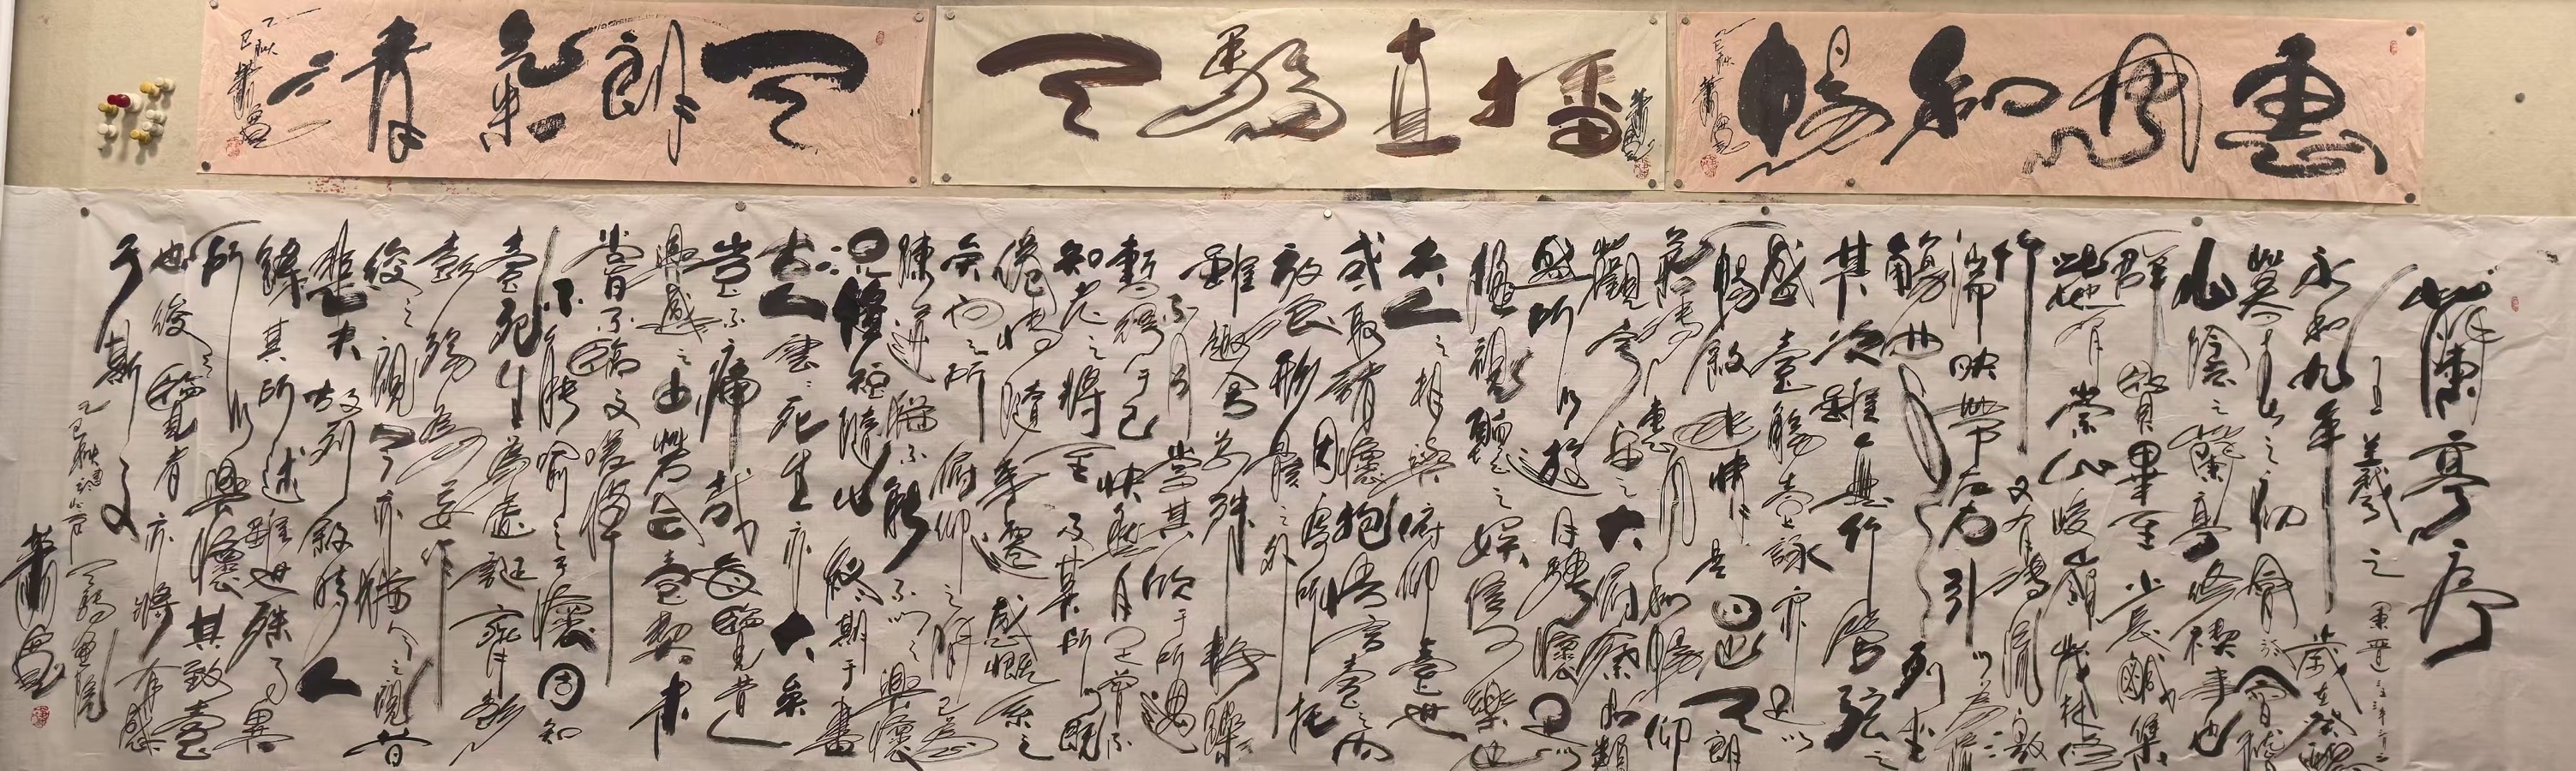 惠風和暢
乙巳秋
天驕直播
天朗氣清
乙巳秋
蘭亭序
王羲之
永和九年歲在癸丑
暮春之初會於會稽
山陰之蘭亭修禊事也
群賢畢至少長咸集
此地有崇山峻嶺茂林修
竹又有清流激
湍映帶左右引以為流
觴曲水列坐
其次雖無絲竹管弦之
盛壹觴壹詠亦足以
暢敘幽情是日也天朗
氣清惠風和暢仰
觀宇宙之大俯察品類之
盛所以遊目騁懷足以
極視聽之娛信可樂也
夫人之相與俯仰壹世
或取諸懷抱悟言壹室之內
或因寄所托
放浪形骸之外
雖趣舍萬殊靜躁
不同當其欣于所遇
暫得于己快然自足曾不
知老之將至及其所既
倦情隨事遷感慨系之
矣向之所欣俯仰之間已為
陳跡猶不能不以之興懷
況修短隨化終期于盡
古人雲死生亦大矣
豈不痛哉每覽昔人
興感之由若合壹契未
嘗不臨文嗟悼
不能喻之于懷固知
壹死生為虛誕齊彭
殤為妄作
後之視今亦猶今之視昔
悲夫故列敘時人
錄其所述雖世殊事異
所以興懷其致壹
也後之覽者亦將有感
于斯文
乙巳秋